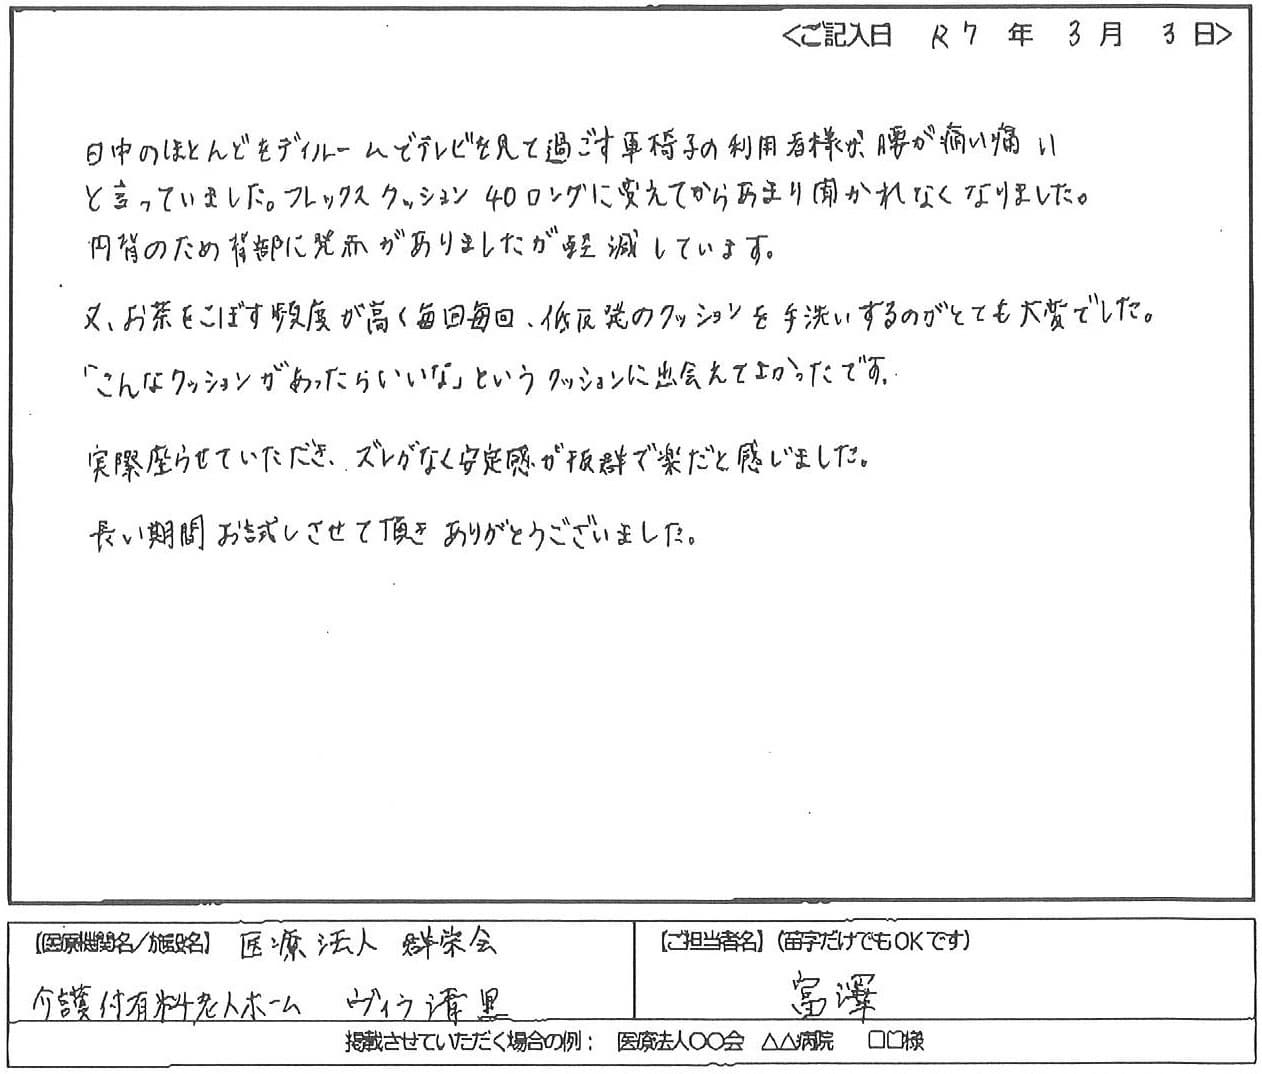 <ご記入日 R7 年 3 月 3 日>
日中のほとんどをデイルームでテレビを見て過ごす車椅子の利用者様が、腰が痛い痛い
と言っていました。フレックスクッション 40ロングに変えてからあまり聞かれなくなりました。
円背のため背部に発赤がありましたが軽減しています。
又、お茶をこぼす頻度が高く毎回毎回、低反発のクッションを手洗いするのがとても大変でした。
「こんなクッションがあったらいいな」というクッションに出会えてよかったです。
実際座らせていただき、ズレがなく安定感が抜群で楽だと感じました。
長い期間お試しさせて頂きありがとうございました。
【医療機関名/施設名】 医療法人 群栄会
介護付有料老人ホーム ヴィラ清里
【ご担当者名】(苗字だけでもOKです)
富澤
掲載させていただく場合の例: 医療法人〇〇会 △△病院 □□様